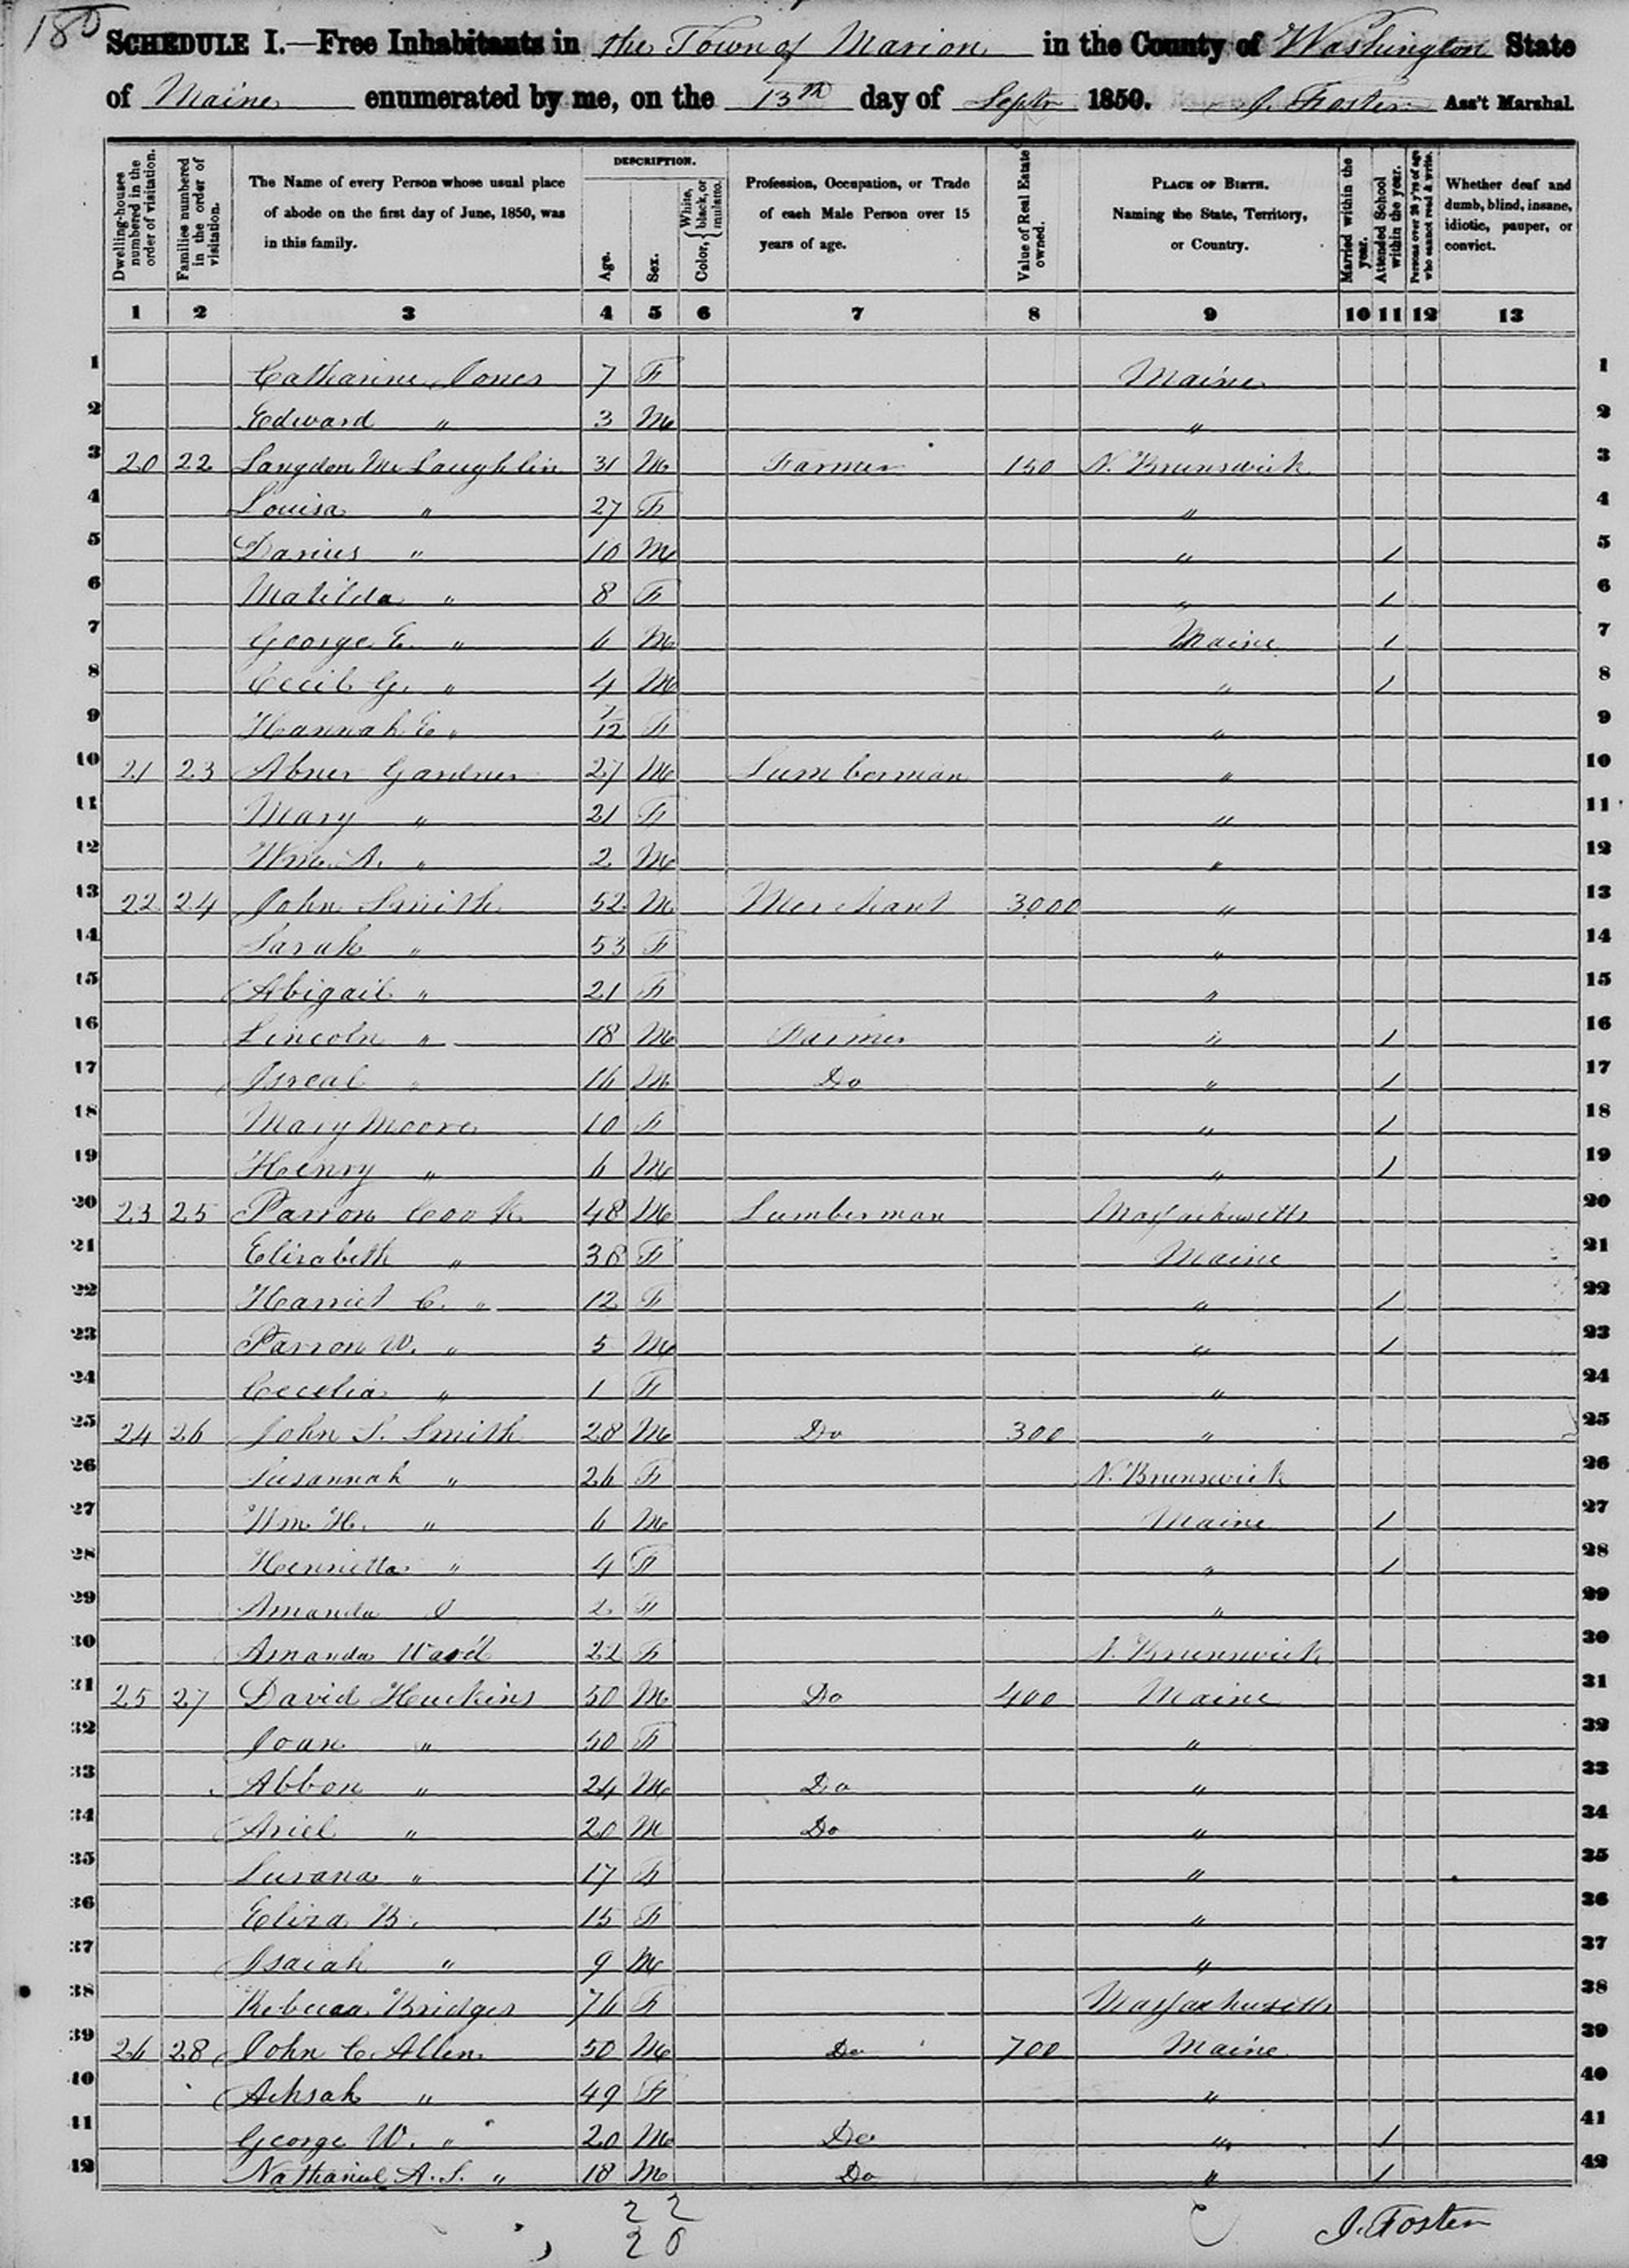 180
SCHEDULE I.—Free Inhabitants in the Town of Marion in the County of Washington State
of Maine enumerated by me, on the 13th day of Septr 1850. J. Foster Ass't Marshal.
Dwelling-houses numbered in the order of visitation.
Families numbered in the order of visitation.
The Name of every Person whose usual place of abode on the first day of June, 1850, was in this family.
DESCRIPTION.
Age.
Sex.
Color, White, black, or mulatto.
Profession, Occupation, or Trade of each Male Person over 15 years of age.
Value of Real Estate owned.
PLACE OF BIRTH. Naming the State, Territory, or Country.
Married within the year.
Attended School within the year.
Persons over 20 y'rs of age who cannot read & write.
Whether deaf and dumb, blind, insane, idiotic, pauper, or convict.
1 2 3 4 5 6 7 8 9 10 11 12 13
1 Catharine Jones 7 F Maine 1
2 Edward " 3 M " 2
3 20 22 Langdon McLaughlin 31 M Farmer 150 N. Brunswick 3
4 Louisa " 27 F " 4
5 Darius " 10 M " 1 5
6 Matilda " 8 F " 1 6
7 George E. " 6 M Maine 1 7
8 Cecil G. " 4 M " 1 8
9 Hannah E " /12 F " 9
10 21 23 Abner Gardner 27 M Lumberman " 10
11 Mary " 21 F " 11
12 Wm. A. " 2 M " 12
13 22 24 John Smith 52 M Merchant 3000 " 13
14 Sarah " 53 F " 14
15 Abigail " 21 F " 15
16 Lincoln " 18 M Farmer " 1 16
17 Isreal " 16 M Do " 1 17
18 Mary Moore 10 F " 1 18
19 Henry " 6 M " 1 19
20 23 25 Parron Cook 48 M Lumberman Massachusetts 20
21 Elizabeth " 38 F Maine 21
22 Harriet C. " 12 F " 1 22
23 Parron W. " 5 M " 1 23
24 Cecelia " 1 F " 24
25 24 26 John S. Smith 28 M Do 300 " 25
26 Susannah " 26 F N. Brunswick 26
27 Wm. H. " 6 M Maine 1 27
28 Henrietta " 4 F " 1 28
29 Amanda 2 F " 29
30 Amanda Ward 22 F N. Brunswick 30
31 25 27 David Huckins 50 M Do 400 Maine 31
32 Joan " 50 F " 32
33 Abbon " 24 M Do " 33
34 Ariel " 20 M Do " 34
35 Lurana " 17 F " 35
36 Eliza B. 15 F " 36
37 Isaiah " 9 M " 37
38 Rebecca Bridges 76 F Massachusetts 38
39 26 28 John C. Allen 50 M Do 700 Maine 39
40 Achsah " 49 F " 40
41 George W. " 20 M Do " 1 41
42 Nathaniel A. S. " 18 M Do " 1 42
22
20
J. Foster